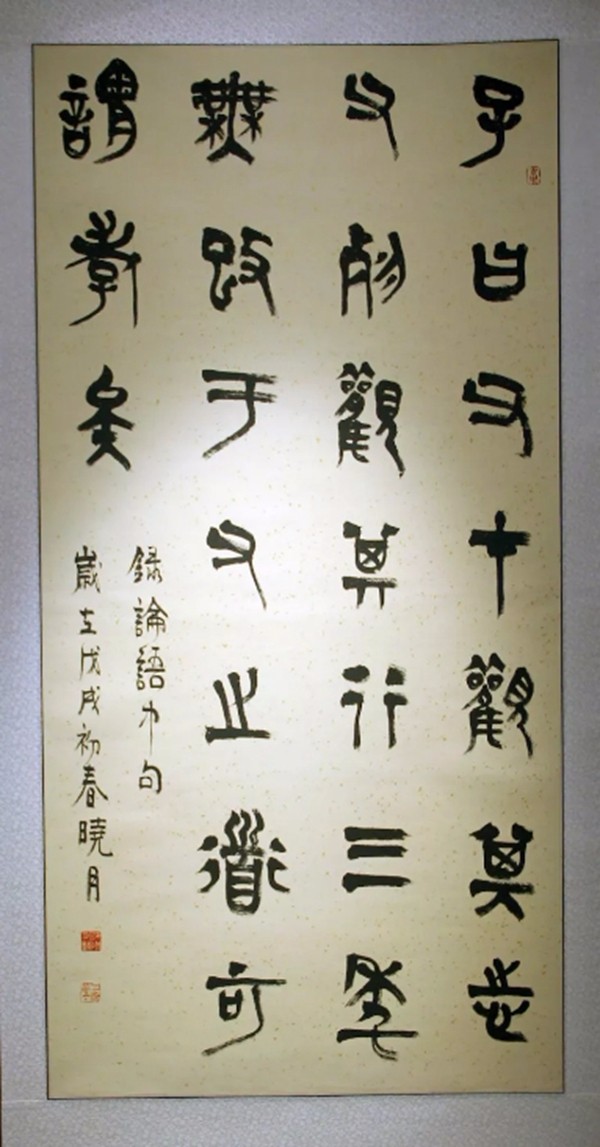 子曰父在觀其志
父歾觀其行三年
無改于父之道可
謂孝矣
錄論語中句
歲在戊戌初春曉月